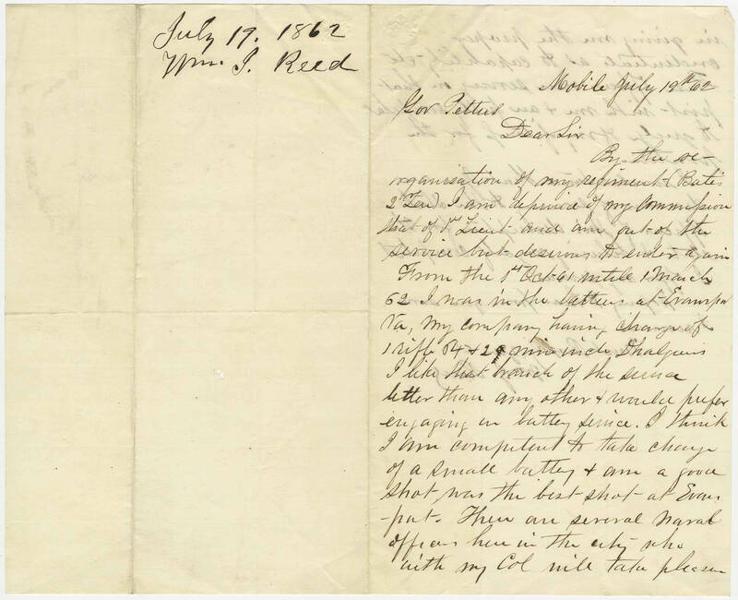 July 19. 1862
Wm. J. Reed
Mobile July 19th 62
Gov Pettus
Dear Sir
By the re-
organisation of my regiment (Bate's
2d Ten) I am deprived of my Commission
that of 1st Lieut and am out of the
service but desirous to enter again
From the 1st Oct 61 untill 1 March
62 I was in the batterys at Evansport
Va, my company having charge of
1 rifle 64 & 2 9 nine inch Dhalgrens
I like that branch of the service
better than any other & would prefer
engaging in battery service. I think
I am competent to take charge
of a small battery & am a good
shot, was the best shot at Evans
-port. There are several Naval
officers here in the city who
with my Col will take pleasure